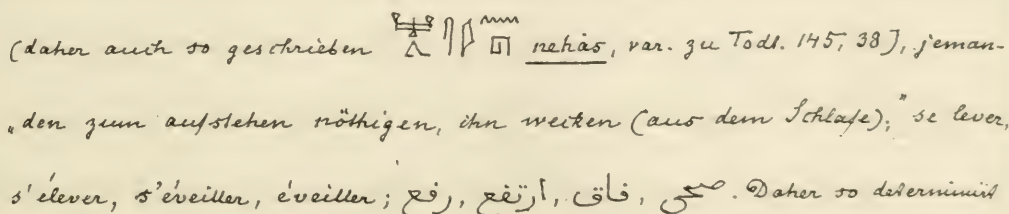 (daher auch so geschrieben nehas, var. zu Todt. 145, 38), jeman-
„den zum aufstehen nöthigen, ihn wecken (aus dem Schlafe);" se lever,
s'élever, s'éveiller, éveiller; رفع, ارتفع, فاق, صحى. Daher so determinirt